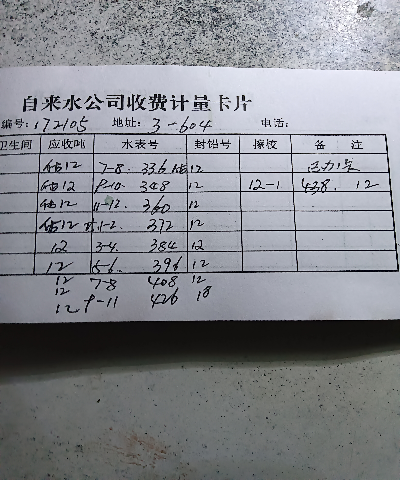 自来水公司收费计量卡片
编号: 172105 地址: 3-604 电话:
卫生间 应收吨 水表号 封铅号 擦校 备 注
估12 7-8. 336 估12
估12 9-10. 348 12 12-1 438. 12
估12 11-12. 360 12
估12 1-2. 372 12
12 3-4. 384 12
12 5-6. 396 12
12 7-8 408 12
12
12 9-11 426 18